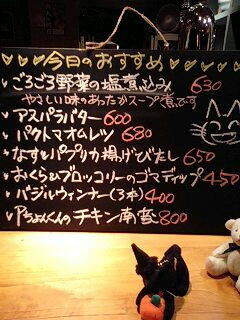 今日のおすすめ
ごろごろ野菜の塩煮込み 630
やさしい味のあったかスープ煮です
アスパラバター 600
パクトマオムレツ 680
なすとパプリカ揚げびたし 650
おくら&ブロッコリーのゴマディップ 450
バジルウィンナー(3本) 400
Pちょんくんのチキン南蛮 800